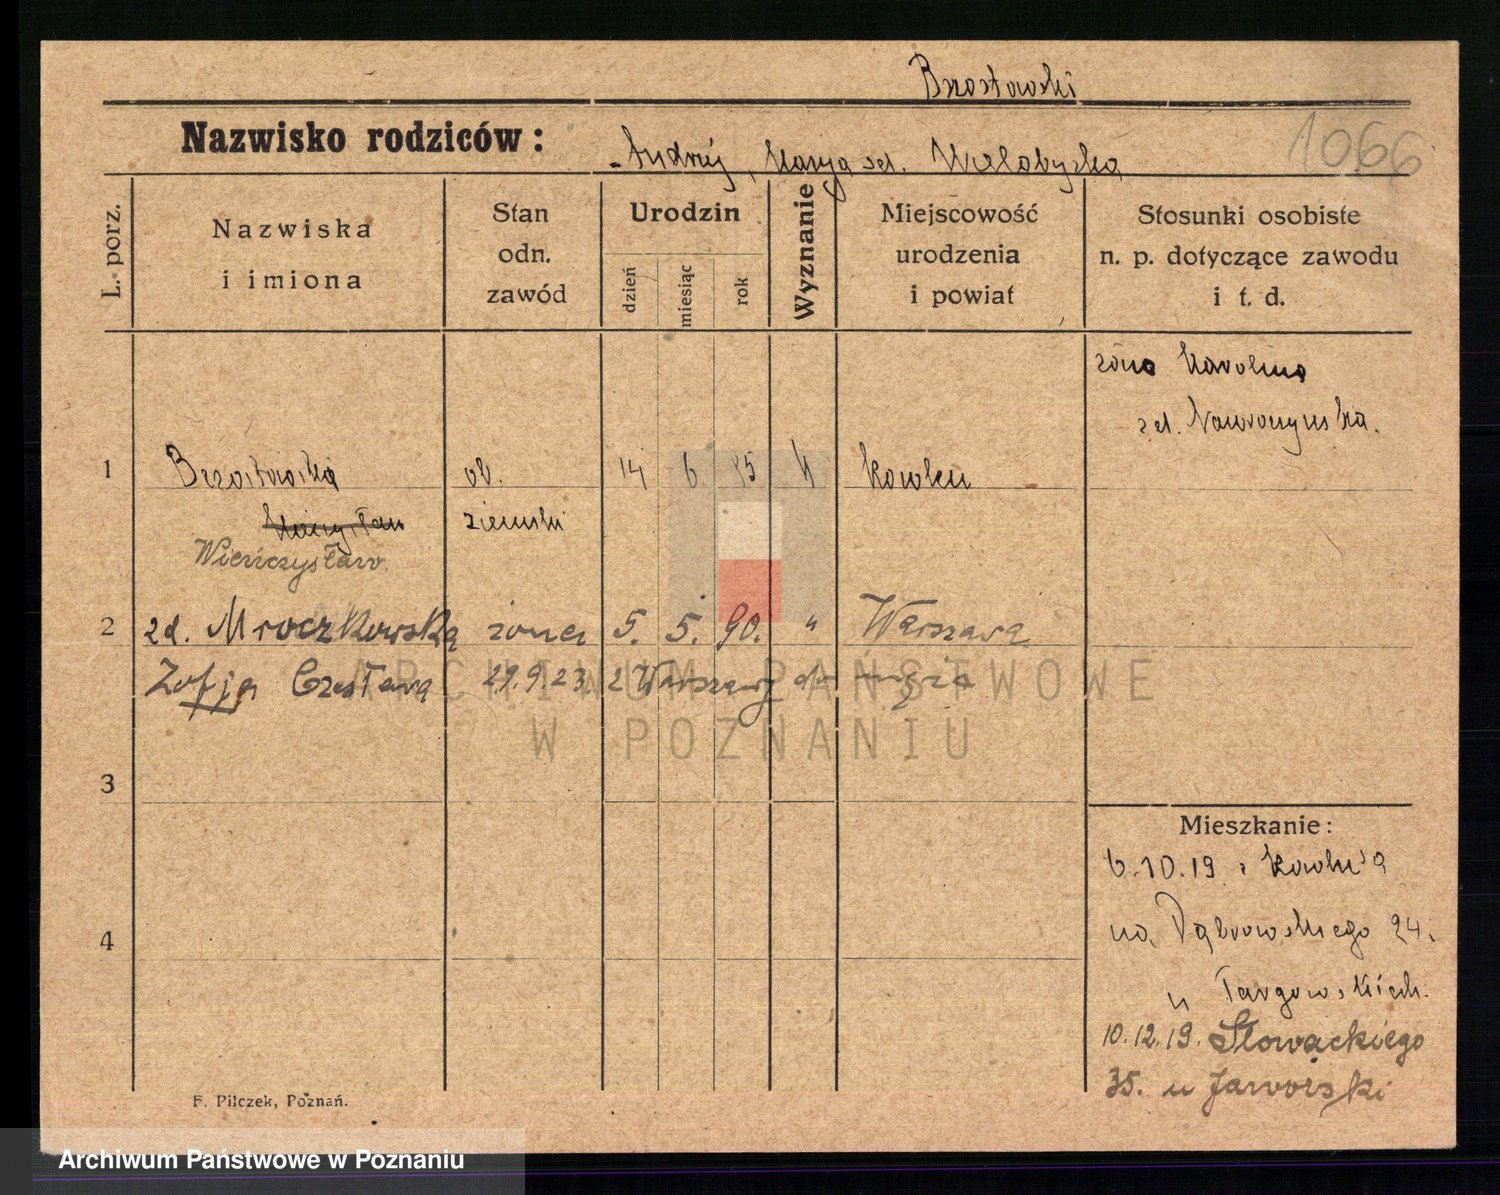 Brzostowski
1066
Nazwisko rodziców:
Andrzej, Marya zd. Wielobycka
L. porz.
Nazwiska
i imiona
Stan
odn.
zawód
Urodzin
dzień
miesiąc
rok
Wyznanie
Miejscowość
urodzenia
i powiat
Stosunki osobiste
n. p. dotyczące zawodu
i t. d.
żona Karolina
zd.
1
Brzostowski
ob.
14
6
85
k
Kowlen
ziemski
Wieńczysław.
2
zd. Mroczkowska
żona
5.
5.
90.
"
Warszawa
Zofja Czesława
29.9.23
z Warszawy do męża
ARCHIWUM PAŃSTWOWE
W POZNANIU
3
4
Mieszkanie:
6.10.19 z
na Dąbrowskiego 24.
u Targowskich.
10.12.19. Słowackiego
35. u Jaworski
F. Pilczek, Poznań.
Archiwum Państwowe w Poznaniu